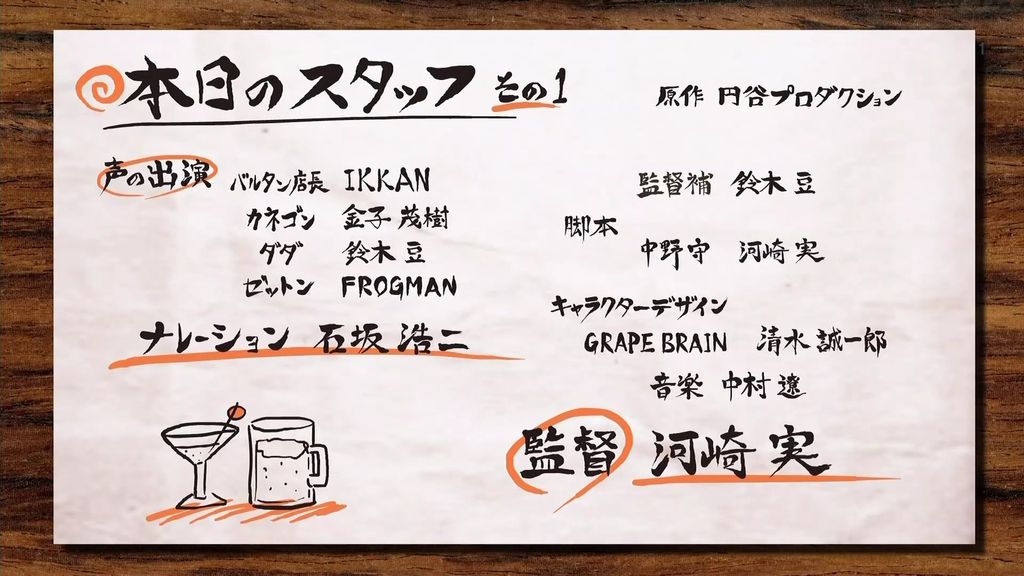 本日のスタッフ その1
原作 円谷プロダクション
声の出演 バルタン店長 IKKAN
カネゴン 金子 茂樹
ダダ 鈴木 豆
ゼットン FROGMAN
ナレーション 石坂 浩二
監督補 鈴木 豆
脚本
中野 守 河崎 実
キャラクターデザイン
GRAPE BRAIN 清水 誠一郎
音楽 中村 遼
監督 河崎 実
1